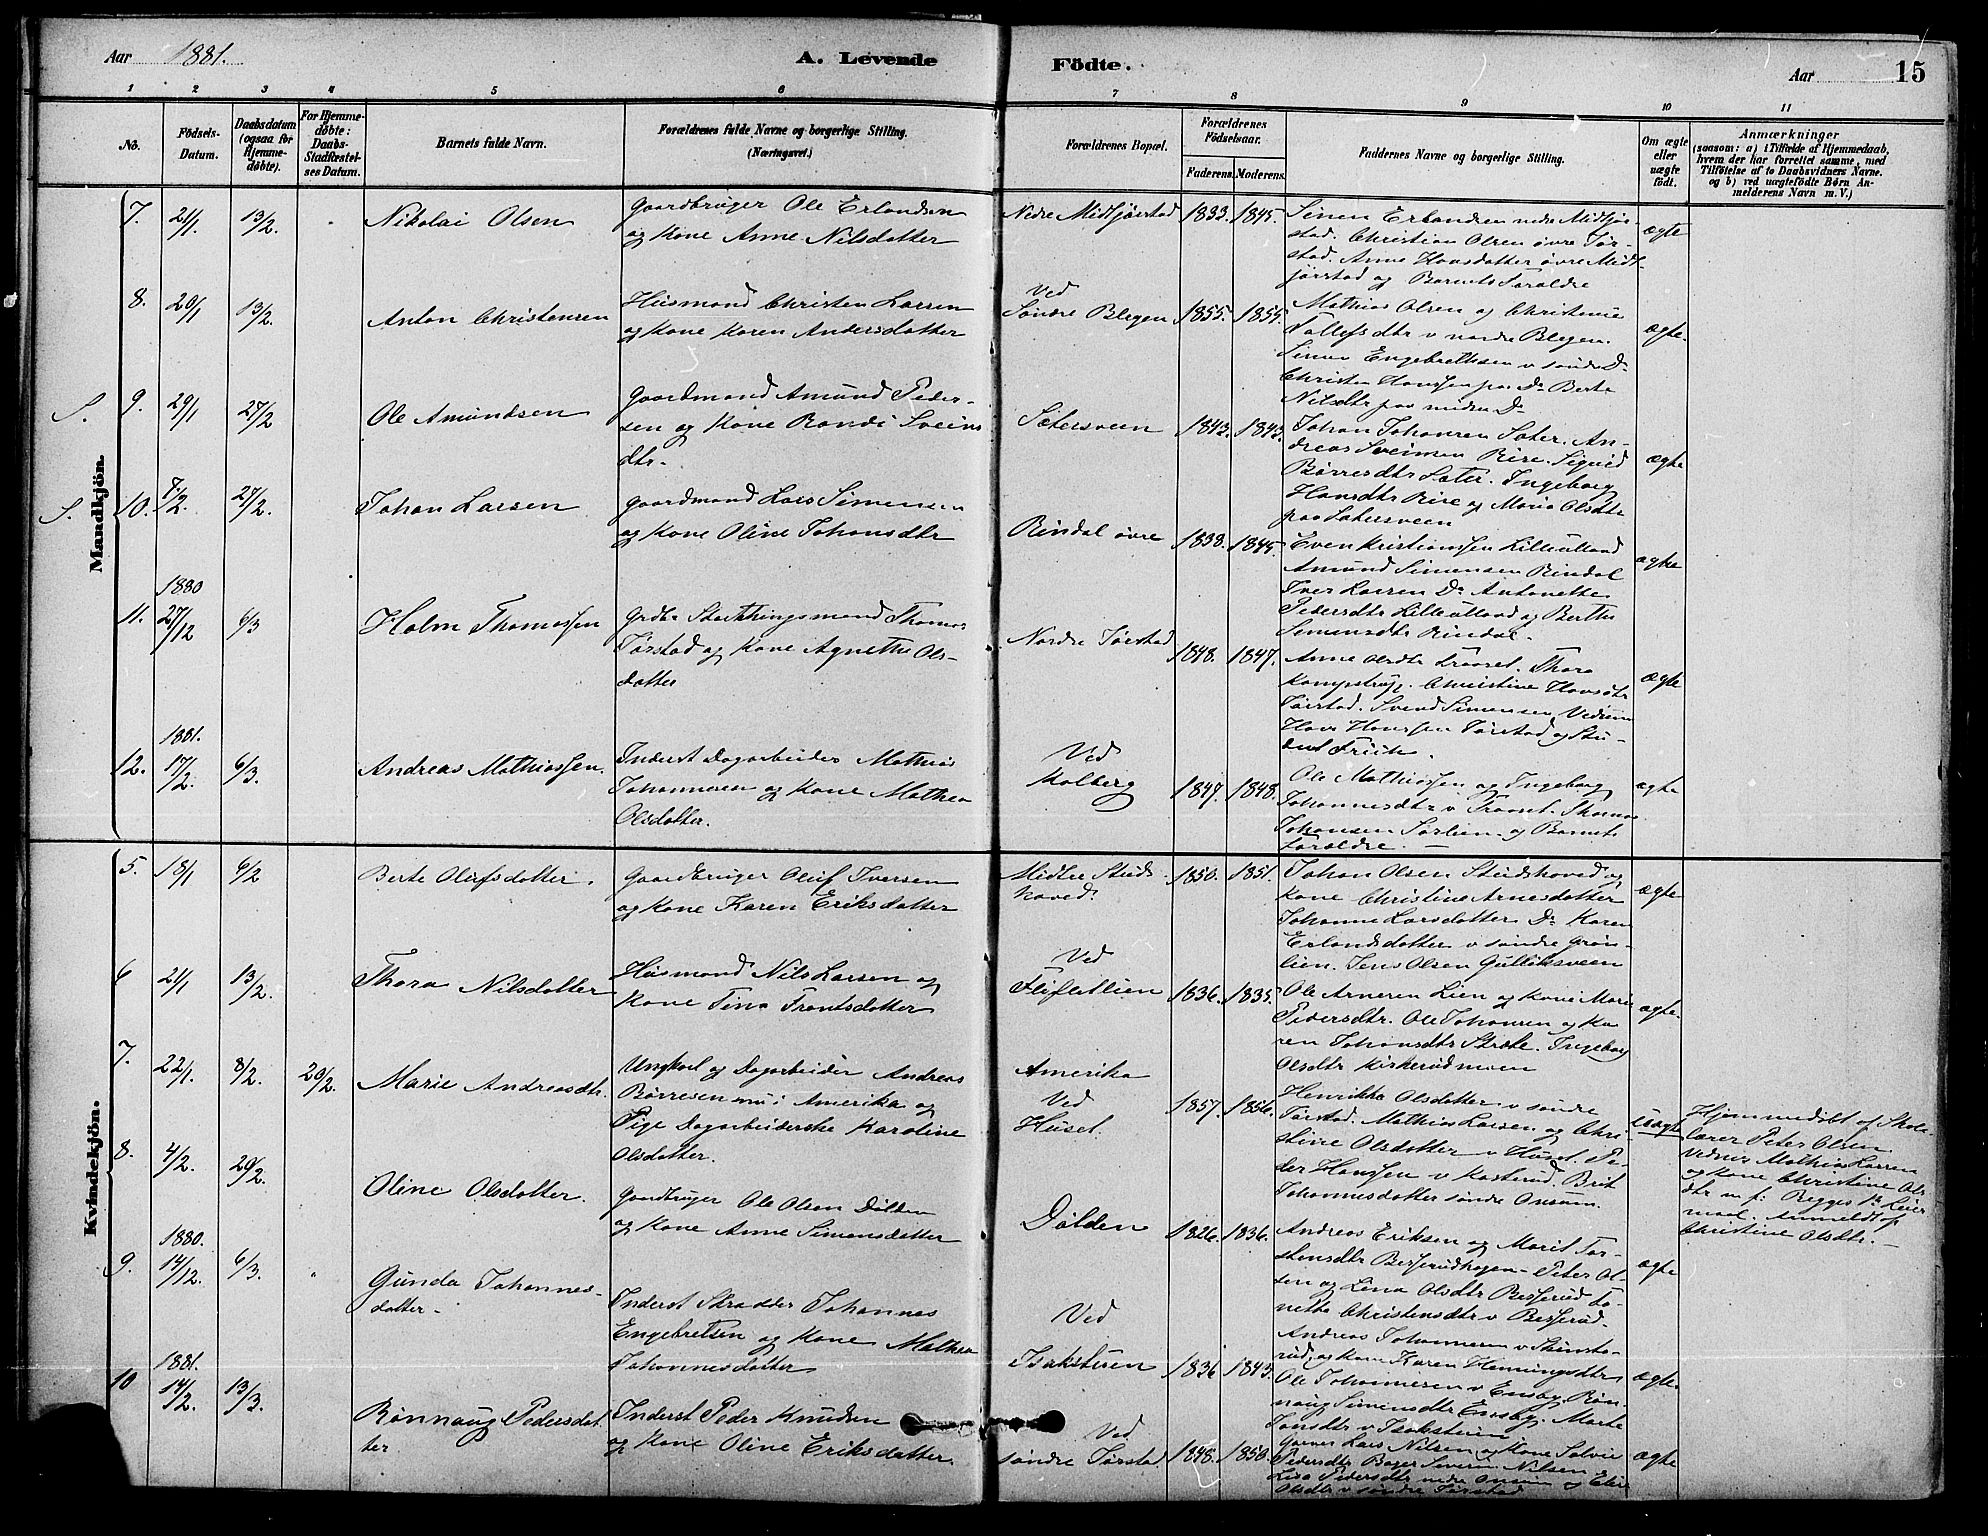 Aar 1881.
A. Levende Födte.
Aar 15
1 2 3 4 5 6 7 8 9 10 11
No.
Födsels-
Datum.
Daabsdatum
(ogsaa for
Hjemme-
døbte).
For Hjemme-
døbte:
Daabs-
Stadfæstel-
ses Datum.
Barnets fulde Navn.
Forældrenes fulde Navne og borgerlige Stilling.
(Næringsvei.)
Forældrenes Bopæl.
Forældrenes
Födselsaar.
Faderens. Moderens.
Faddernes Navne og borgerlige Stilling.
Om ægte
eller
uægte
født.
Anmærkninger
(saasom: a) i Tilfælde af Hjemmedaab,
hvem der har forrettet samme, med
Tilføielse af to Daabsvidners Navne,
og b) ved uægtefødte Børn An-
melderens Navn m. V.)
Mandkjön.
7. 21/1. 13/2. Nikolai Olsen
Gaardbruger Ole Erlandsen
og Kone Anne Nilsdatter
Nedre Midtjørstad 1833. 1845.
Simen Erlandsen nedre Midtjør-
stad. Christian Olsen øvre Tør-
stad. Anne Hansdatter øvre Midt-
jørstad og Barnets Forældre
ægte
8. 20/1 13/2. Anton Christensen
Husmand Christen Larsen
og Kone Karen Andersdatter
Ved
Søndre Blegen 1855. 1855.
Mathias Olsen og Christine
Tollefsdtr v nordre Blegen.
Simen Engebrethsen v søndre Do
Christen Hanssen paa Do Berte
Nilsdtr paa nedre Do
ægte.
S. 9. 29/1 27/2 Ole Amundsen
Gaardmand Amund Peder-
sen og Kone Randi Sveins
dtr.
Sætersveen 1842. 1843.
Johan Johansen Sæter. An-
dreas Sveinsen Rise. Sigrid
Børresdtr Sæter. Ingeborg
Hansdtr Rise og Maria Olsdtr
paa Sætersveen
ægte
S. 10. 7/2 27/2. Johan Larsen
Gaardmand Lars Simensen
og Kone Oline Johansdtr
Rindal øvre 1838. 1845.
Even Kristiansen Lilleulland
Amund Simensen Rindal
Iver Larsen Do Antonette
Pedersdtr Lilleulland og Berthe
Simensdtr Rindal.
ægte
1880
11. 27/12 6/3 Holm Thomassen
Grdbr Storthingsmand Thomas
Tørstad og Kone Agnethe Ols-
datter
Nordre Tørstad 1848. 1847.
Anne Olsdtr Thora
Christine Hansdtr
Tørstad. Svend Simensen Vedum
Hans Hanssen Tørstad og Stu-
dent
ægte
1881.
12. 17/2. 6/3. Andreas Mathiassen.
Inderst Dagarbeider Mathias
Johannesen og Kone Mathea
Olsdatter.
Ved
Kolberg 1847. 1848.
Ole Mathiassen og Ingeborg
Johannesdtr v Thomas
Johansen Sørlien og Barnets
Forældre. —
ægte
Kvindekjön.
5. 18/1 6/2 Berte Olufsdatter.
Gaardbruger Oluf Iversen
og Kone Karen Eriksdatter
Midtre Studs-
hoved. 1850. 1851.
Johan Olsen Studshoved og
Kone Christine Arnesdatter
Johanne Larsdatter Do Karen
Erlandsdatter v søndre Grøn-
lien. Jens Olsen Gulliksveen
ægte
6 21/1 13/2. Thora Nilsdatter
Husmand Nils Larsen og
Kone Tina Frantsdatter
Ved
Fliflatlien 1836. 1835.
Ole Arnesen Lien og Kone Marie
Pedersdtr. Ole Johansen og Ka
ren Johansdtr Stræte. Ingeborg
Olsdtr Kirkerudmoen
ægte.
7. 22/1. 8/2. 20/2. Marie Andreasdtr.
Ungkarl og Dagarbeider Andreas
Børresen nu i Amerika og
Pige Dagarbeiderske Karoline
Olsdatter.
Amerika
Ved
Huset. 1857. 1856.
Henrikka Olsdatter v søndre
Tørstad. Mathias Larsen og Chri-
stine Olsdatter v Huset. Pe-
der Hanssen v Kasterud. Brit
Johannesdatter søndre Onsum.
uægt
Hjemmedøbt af Sko-
lærer Peter Olsen
Vidner Mathias Larsen
og Kone Christine Ols-
dtr m. f. Begges 1ste Leier
maal. Anmeldt af
Christine Olsdtr. —
8. 4/2. 20/2. Oline Olsdatter.
Gaardbruger Ole Olsen Dølden
og Kone Anne Simensdatter
Dølden 1826. 1836.
Andreas Eriksen og Marit Tor-
stensdtr Besserudhagen. Peter Ol-
sen og Lina Olsdtr Besserud To-
netta Christensdtr v Besserud.
ægte
1880.
9. 14/12. 6/3. " Gunda Johannes-
datter.
Inderst Skrædder Johannes
Engebretsen og Kone Mathea
Johannesdatter
Ved
Isakstuen 1836 1843.
Andreas Johannesen v Stensto-
rud og Kone Karen Henningsdtr
Ole Johannesen v Ensby. Røn-
naug Simensdtr Ensby. Marte
Jonsdtr v Isakstuen
ægte.
1881.
10 14/2 13/3. Rønnaug Pedersdat
ter.
Inderst Peder Knudsen
og Kone Oline Eriksdatter.
Ved
søndre Tørstad. 1848. 1850.
Garver Lars Nilsen og Kone Solvei
Pedersdtr Severin Nilsen
Lisa Pedersdtr nedre Onsum og
Olsdtr v søndre Tørstad
ægte